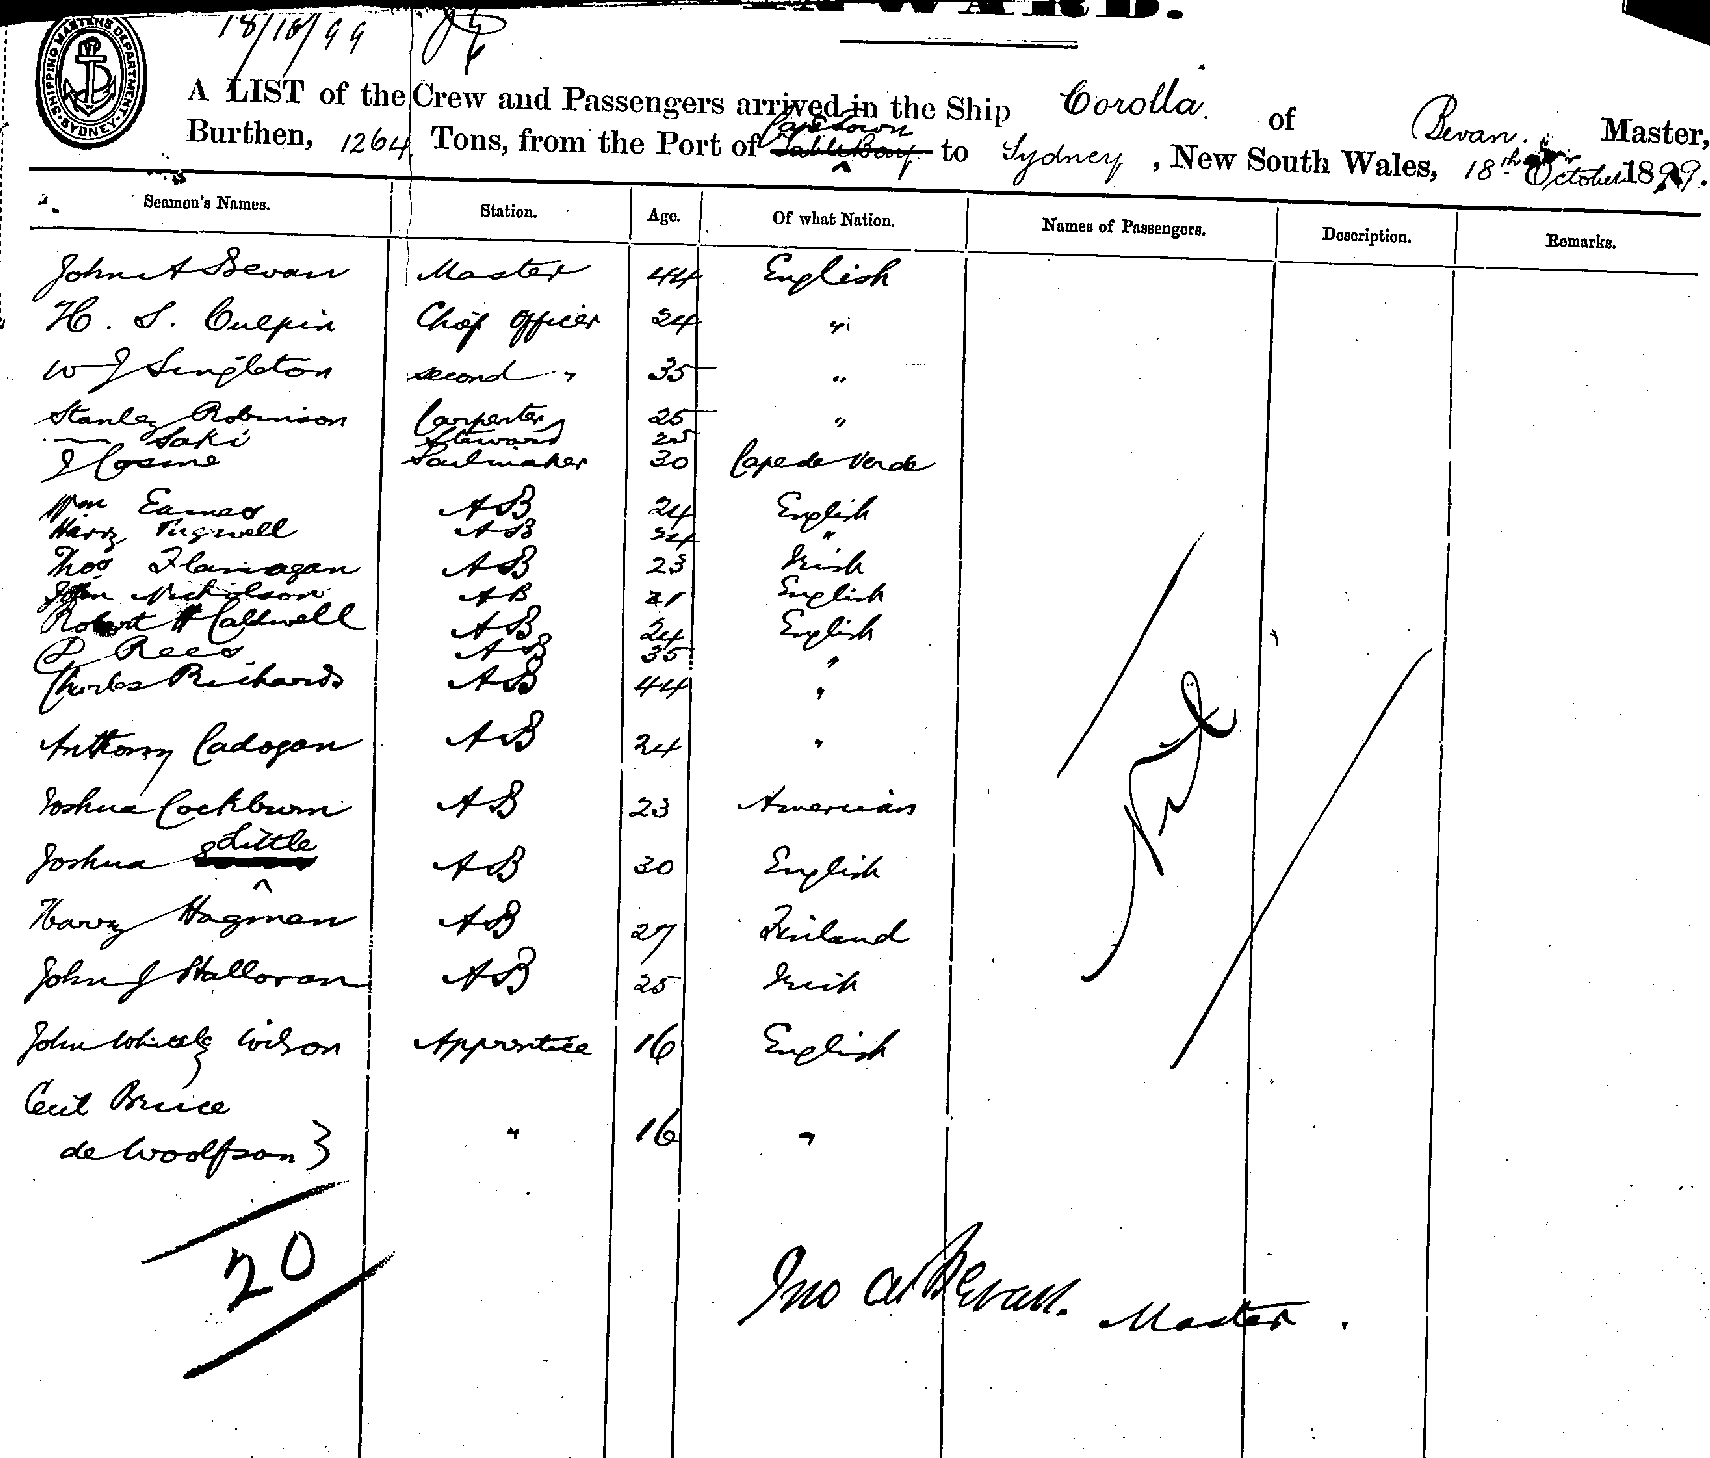 INWARD.
18/10/99
SHIPPING MASTERS DEPARTMENT SYDNEY
A LIST of the Crew and Passengers arrived in the Ship Corolla. of Bevan. Master,
Burthen, 1264 Tons, from the Port of Cape Town to Sydney, New South Wales, 18th October 1899.
Seamen's Names. Station. Age. Of what Nation. Names of Passengers. Description. Remarks.
John A Bevan Master 44 English
H. S. Culpin Chief Officer 24 "
W J Singleton second " 35 "
Stanley Robinson Carpenter 25 "
— Saki Steward 25
J Cosme Sailmaker 30 Cape de Verde
Wm Eames AB 24 English
Harry Tugwell AB 24 "
Thos Flanagan AB 23 Irish
John Nicholson AB 21 English
Robert H Caldwell AB 24 English
D Rees AB 35 "
Charles Richards AB 44 "
Anthony Cadogan AB 24 "
Joshua Cockburn AB 23 American
Joshua Little AB 30 English
Harry Hagman AB 27 Finland
John J Halloran AB 25 Irish
John Wilson Apprentice 16 English
Cecil Bruce
de Woolfson } " 16 "
Nil
20
Jno A Bevan. Master.